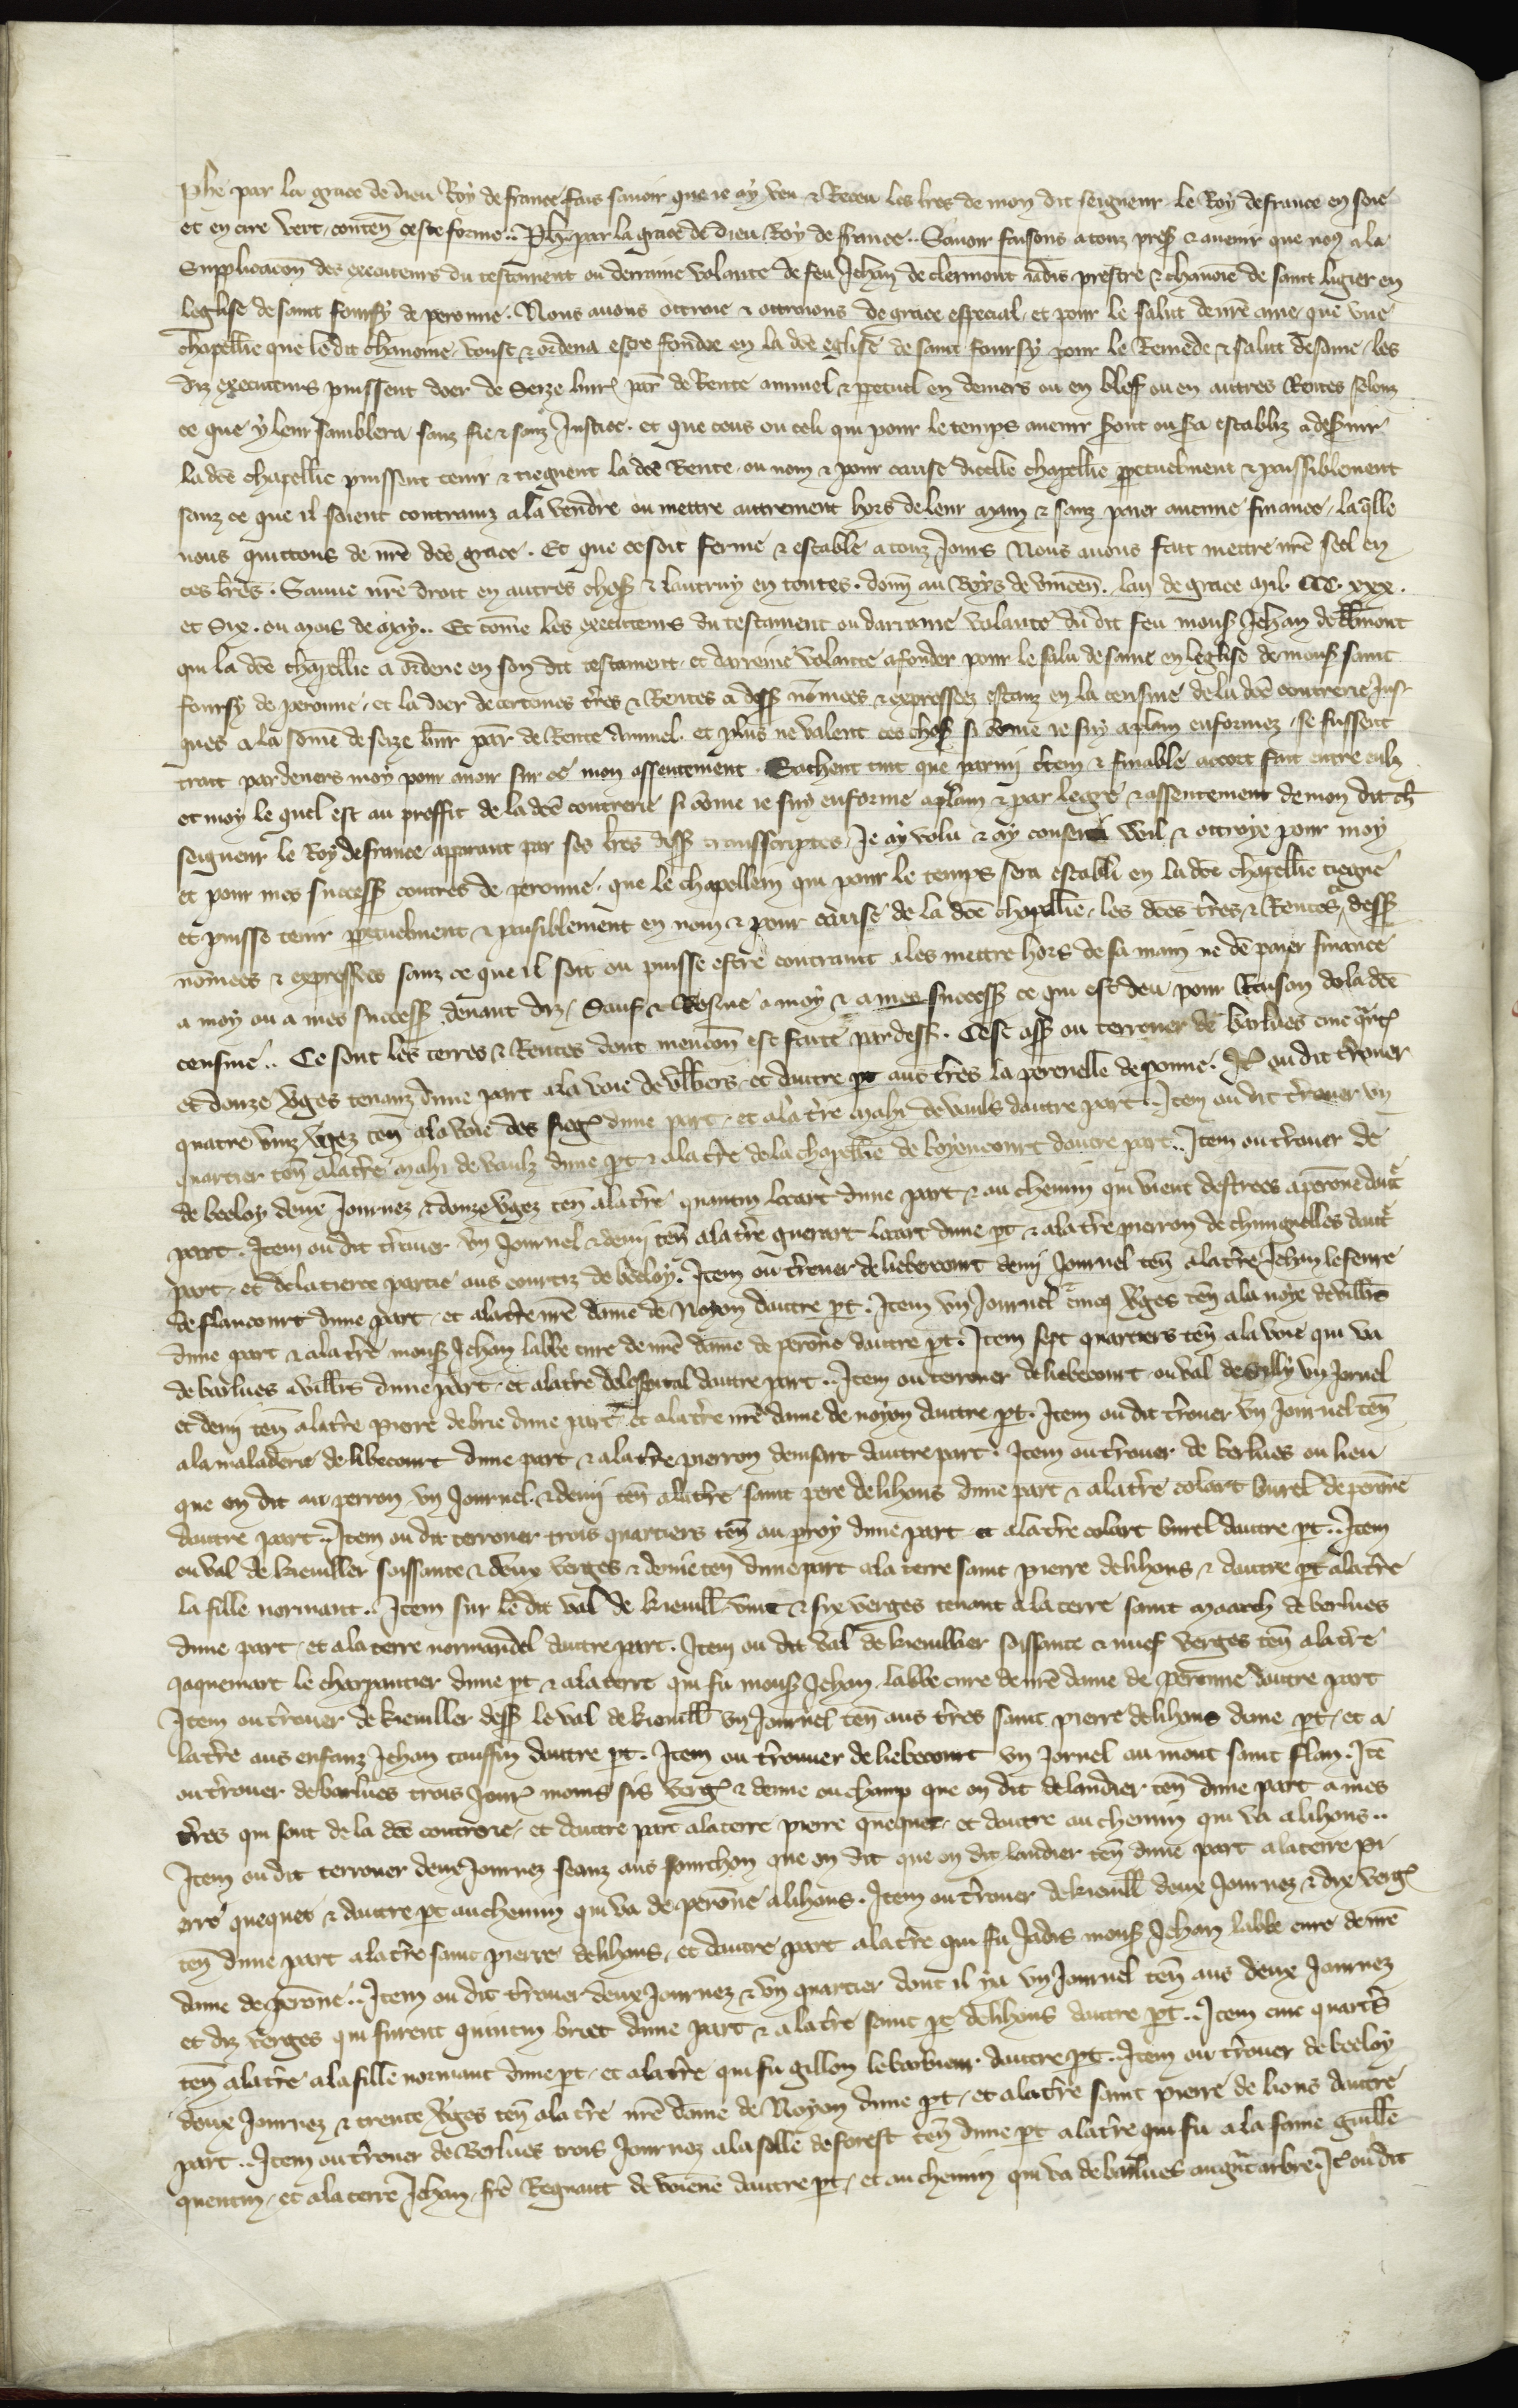 Phe par la grace de dieu Roy de france fais savoir que ie ay veu & Receu les lres de mon dit seigneur le Roy de france en soie
et en cire vert conteñ ceste forme .. Ph par la grace de dieu Roy de france .. Savoir faisons a touz pres & avenir que noꝯ a la
Supplicacon des executeurs du testament ou derraine volante de feu Jehan de clermont iadis prestre & chanoie de saint ligier en
leglise de saint foursy de peronne . Nous avons ottroie & ottroions de grace especial et pour le salut de nre ame que une
chapellie que le dit chanoine voust & ordena estre fondee en la dce eglise de saint foursy pour le Remede & salut de same les
diz executeurs puissent doer de Seize livr par de Rente annuel & perpetuel en deniers ou en blef ou en autres Rentes selonz
ce que y leur samblera sanz fie & sanz Justice . et que ceus ou celi qui pour le temps avenir sont ou sa establiz a deservir
la dce chapellie puissent tenir & tiegnent la dce Rente ou nom & pour cause dicelle chapellie ppetuelment & paissiblement
sanz ce que il soient contrainz a la vendre ou mettre autrement hors de leur main & sanz paier aucune finance / la qlle
nous quittons de nre dce grace . Et que ce soit ferme & estable a touz Jours Nous avons fait mettre nre seel en
ces lres . Sauve nre droit en autres choses & lautruy en toutes . donn au Boys de vincen . lan de grace mil CCC . xxx .
et Six . ou mois de may .. Et come les executeurs du testament ou darraine volante du dit feu mons Jehan de clermont
qui la dce chapellie a ordene en son dit testament et darreine volante a fonder pour le salu de same en leglise de mons saint
foursy de peronne et la doer de certeines tres & Rentes ci dess nomees & expressees estanz en la censive de la dce contrerie Jus
ques a la some de seize livr par de Rente Annuel . et plus ne valent ces choses si come ie suy a plain enformez se fussent
trait par devers moy pour avoir sur ce mon assentement . Sachent tuit que parmi ctein & finable accort fait entre eulz
et moy le quel est au proffit de la dce contrerie si come ie suy enforme a plain & par legre & assentement de mon dit ch
seigneur le Roy de france apparant par ses lres dess transscriptes Je ay volu & ay consenti veil & ottroye pour moy
et pour mes success contres de peronne que le chapellein qui pour le temps sera establi en la dce chapellie tiegne
et puisse tenir ppetuelment & paisiblement en nom & pour cause de la dce chapellie les dces tres & Rentes dess
nomees & expressees sanz ce que il soit ou puisse estre contraint a les mettre hors de sa main ne de paier finance
a moy ou a mes success devant diz / Sauf & Reserve a moy & a mes success ce qui est deu pour Raison de la dce
censive .. Ce sont les terres & Rentes dont mencon est faite par dess . Cest ass ou terrouer de barlues cinc qrt
et douze vges tenanz dune part a la voie de villers et dautre pt aus tres la perenelle de peronne . Jt ou dit trouer
quatre vinz vgez ten a la voie des sieg dune part et a la tre mahi de vauls dautre part . Item ou dit trouer vn
quartier ten a la tre mahi de vaulz dune pt & a la tre de la chapellie de boyencourt dautre part .. Item ou trouer de
de beeloy deus Journez & douze vgez ten a la tre quantin locart dune part & au chemin qui vient destrees a perone daut
part . Item ou dit trouer vn Journel & demi ten a la tre guerart locart dune pt & a la tre pierron de chuignelles daut
part et de la tierce partie aus courtiz de beeloy . Item ou trouer de liebecourt demi Journel ten a la tre Jehan lefevre
de flaucourt dune part et a la tre nre dame de Noyon dautre pt . Item vn Journel cincq vges ten a la voye de villrs
dune part & a la tre mons Jehan labbe cure de nre dame de perone dautre pt . Item sept quartiers ten a la voie qui va
de barlues a villrs dune part et a la tre de lospital dautre part .. Item ou terrouer de liebecourt ou val de Sylly vn Jornel
et demi ten a la tre pierre de brie dune part et a la tre nre dame de noyon dautre pt . Item ou dit trouer vn Journel ten
a la maladerie de libecourt dune part & a la tre pierron demsart dautre part . Item ou trouer de berlues ou lieu
que on dit au perron vn Journel & demi ten a la tre saint pere de lihons dune part & a la tre colart burel de perone
dautre part .. Item ou dit terrouer trois quartiers ten au proy dune part et a la tre colart burel dautre pt .. Item
ou val de kieviller soissante & deux verges & demie ten dune part a la terre saint pierre de lihons & dautre pt a la tre
la fille normant .. Item sur le dit val de kievill vint & six verges tenant a la terre saint maarch de berlues
dune part et a la terre normandel dautre part . Item ou dit val de kieviller soissante & nuef verges ten a la tre
jaquemart le charpentier dune pt & a la terre qui fu mons Jehan labbe cure de nre dame de peronne dautre part
Item ou trouer de kieviller dess le val de kievill vn Journel ten aus tres saint pierre de lihons dune pt et a
la tre aus enfanz Jehan cauffin dautre pt . Item ou trouuer de liebecourt vn Jornel au mont saint flan . Ite
ou trouer de barlues trois Jour moins sis verg & demie ou champ que on dit de landier ten dune part a mes
tres qui sont de la dce contrerie et dautre part a la terre pierre quequet et dautre au chemin qui va a lihons ..
Item ou dit terrouer deus Journez seanz aus fourchon que on dit que on dit landier ten dune part a la terre pi
erre quequet & dautre pt au chemin qui va de perone a lihons . Item ou trouer de kievill deux Journez & dix verg
ten dune part a la tre saint pierre de lihons et dautre part a la tre qui fu Jadis mons Jehan labbe cure de nre
dame de perone .. Item ou dit trouer deux Journez & vn quartier dont il y a vn Journel ten aus deux Journez
et diz verges qui furent quintin briet dune part & a la tre saint pe de lihons dautre pt .. Item cinc quartrs
ten a la tre a la fille normant dune pt et a la tre qui fu gillon le barbieur dautre pt . Item ou trouer de beeloy
deux Journez & trente vges ten a la tre nre dame de Noyon dune pt et a la tre saint pierre de lions dautre
part .. Item ou trouer de Berlues trois Journez a la selle de forest ten dune pt a la tre qui fu a la fame guille
quentin et a la terre Jehan fre Regnaut de voienne dautre pt et au chemin qui va de barlues au grt arbre . Jt ou dit